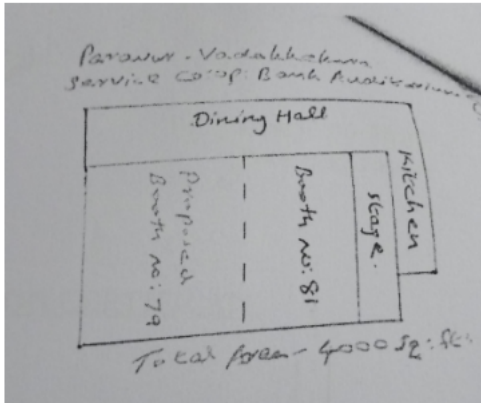 Paravur - Vadakkekara
Service Co-op: Bank Auditorium
Dining Hall
Kitchen
Stage.
Booth no: 81
Proposed
Booth no: 79
Total Area - 4000 sq: ft